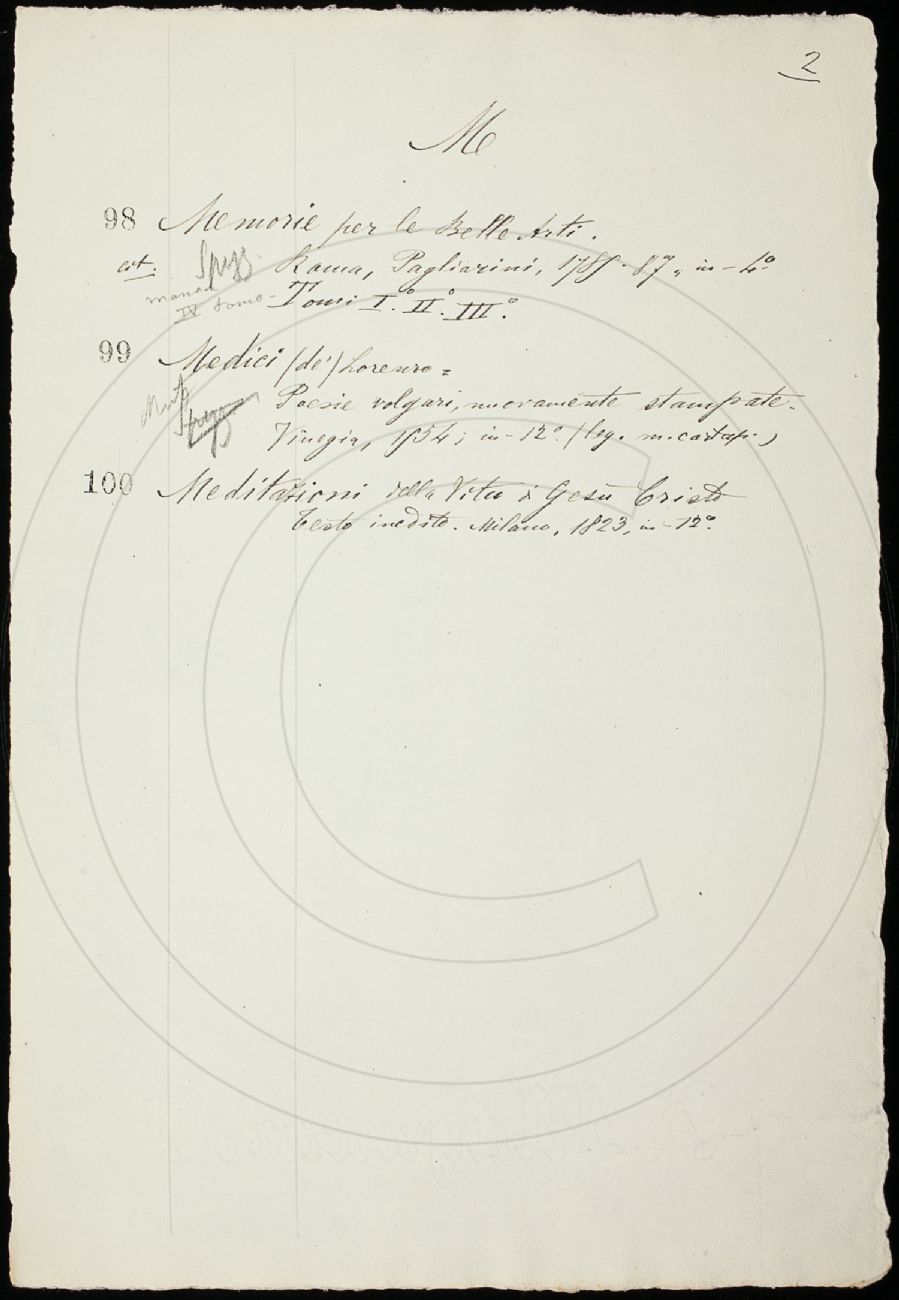 2
M
98 Memorie per le Belle Arti.
Roma, Pagliarini, 1785-87, in-4°
Tomi I.° II.° III.°
manca
IV tomo
99 Medici (de') Lorenzo =
Poesie volgari, nuovamente stampate.
Vinegia, 1554; in-12° (leg. m. cartap.)
100 Meditazioni della Vita di Gesù Cristo
Testo inedito. Milano, 1823, in-12°.